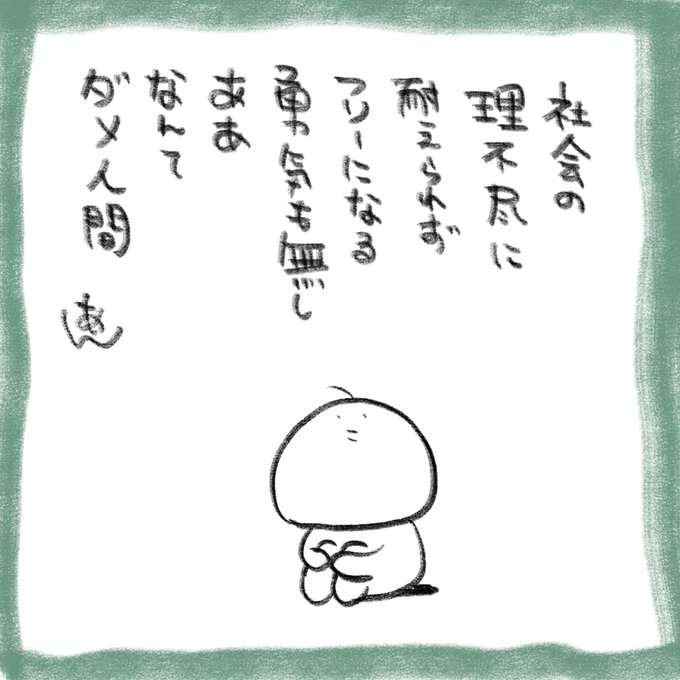 社会の
理不尽に
耐えられず
フリーになる
勇気も無し
ああ
なんて
ダメ人間
あん